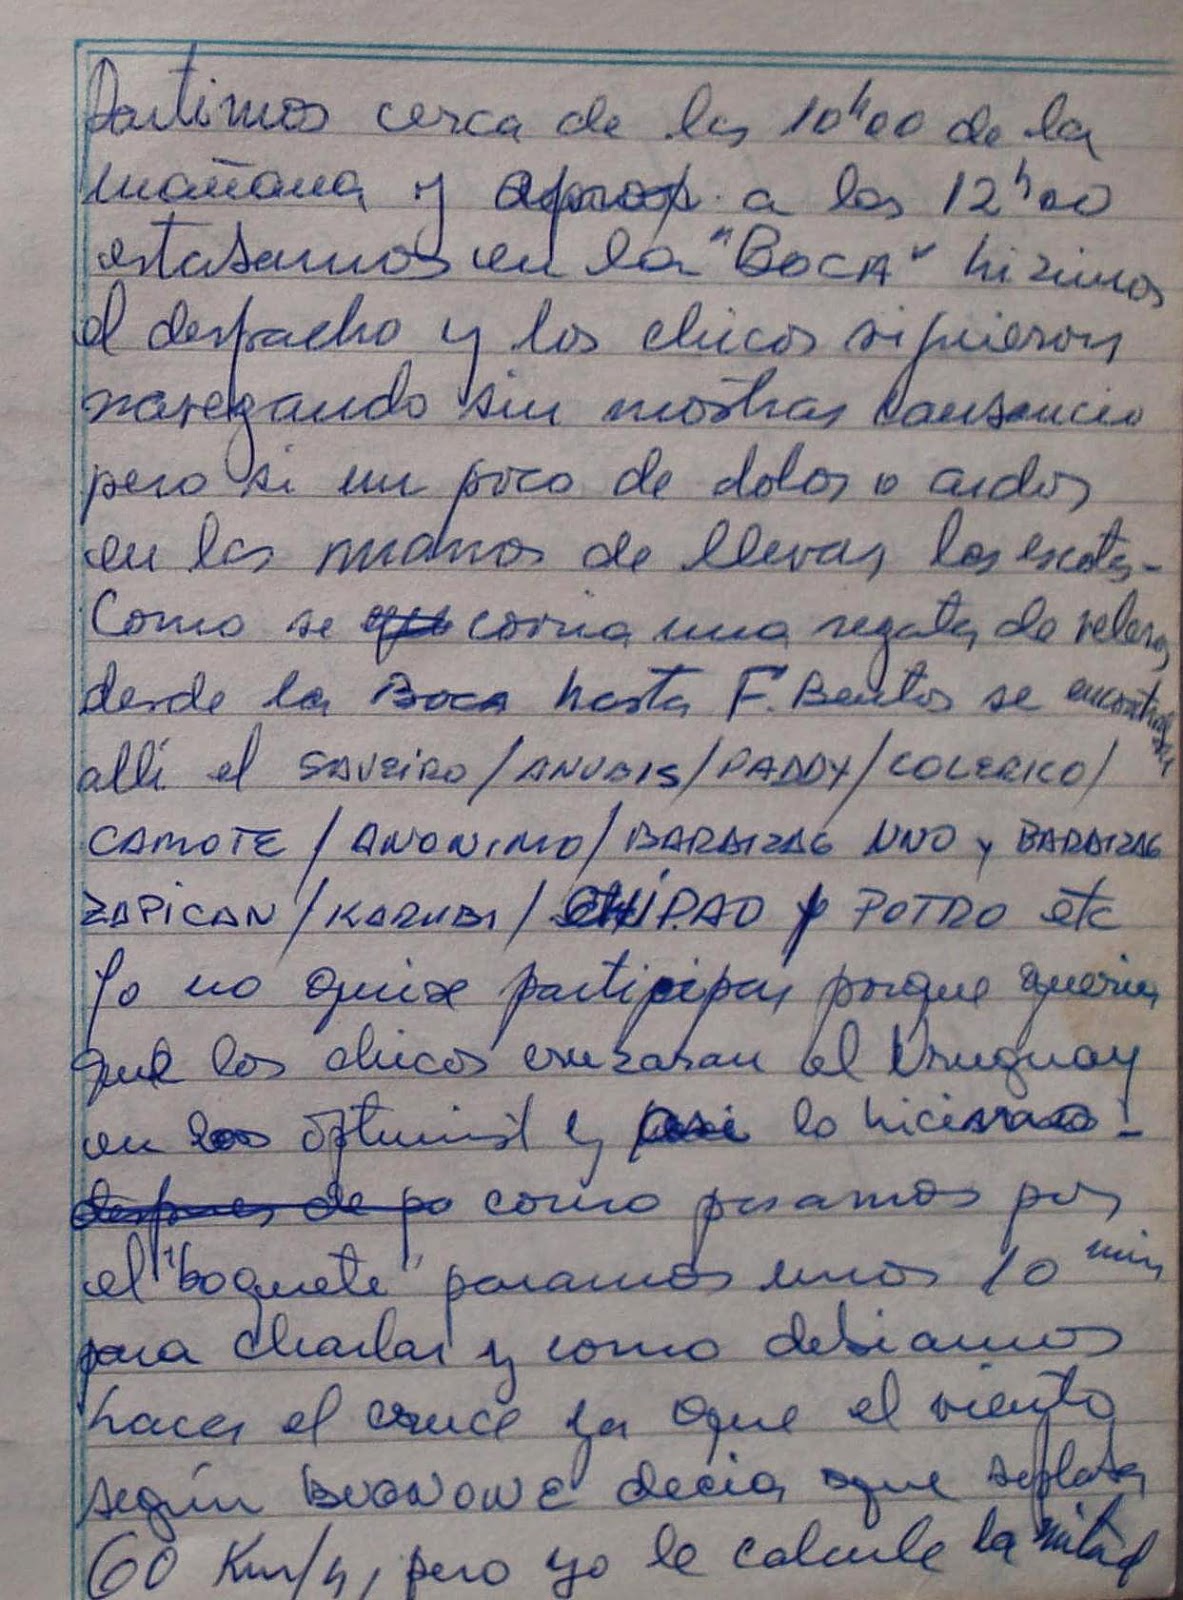 Partimos cerca de las 10ʰ00 de la
mañana y aprox. a las 12ʰ00
estabamos en la "BOCA" hizimos
el despacho y los chicos siguieron
navegando sin mostrar cansancio
pero si un poco de dolor o ardor
en las manos de llevar las escotas-
Como se corria una regata de veleros
desde la Boca hasta F. Bentos se encontraban
allí el SAVEIRO/ANUBIS/PADDY/COLERICO/
CAMOTE/ANONIMO/BARDIZAG UNO y BARDIZAG
ZAPICAN/KARUBI/ y POTRO etc
Yo no quize participar porque queria
que los chicos cruzaran el Uruguay
en optimist y lo hicieron!-
como pasamos por
el "boquete" paramos unos 10 min
para charlar y como debiamos
hacer el cruce ya que el viento
según decia que soplaba
60 Km/h, pero yo le calcule la mitad